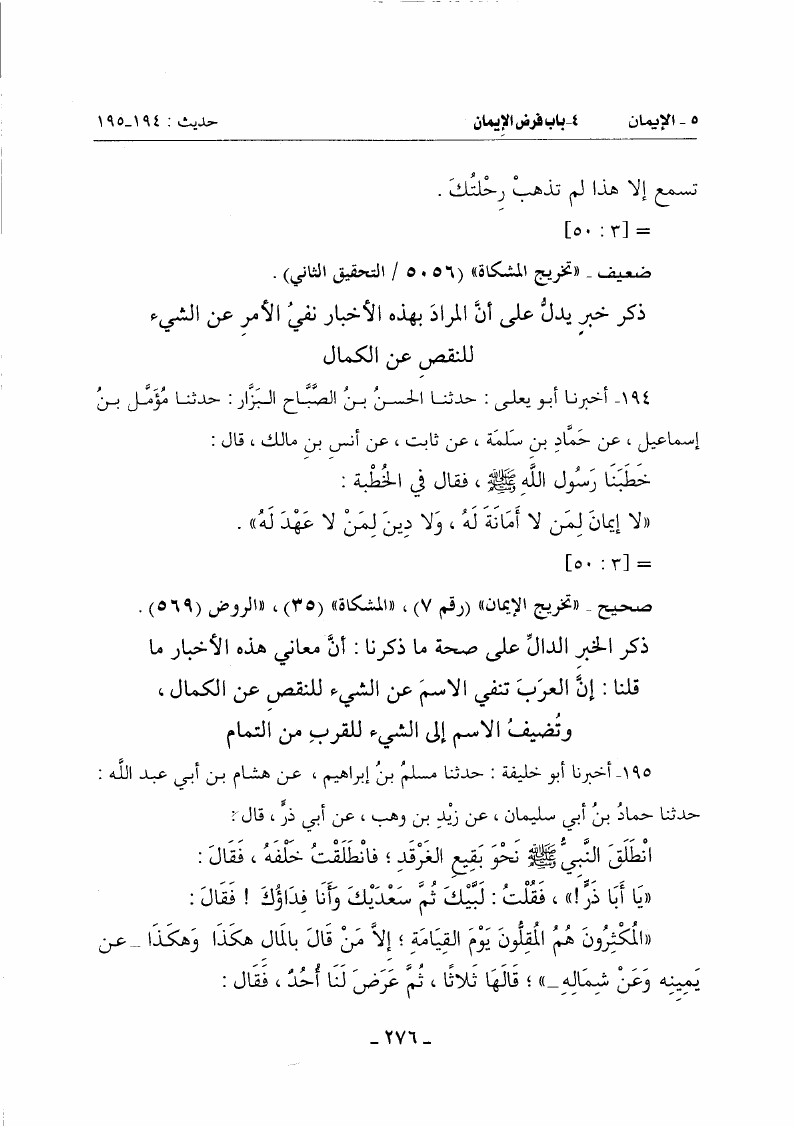 ٥ - الإيمان ٤-باب فرض الإيمان حديث : ١٩٤-١٩٥
تسمع إلا هذا لم تذهبْ رِحْلتُكَ .
= [٣ : ٥٠]
ضعيف - «تخريج المشكاة» (٥٠٥٦ / التحقيق الثاني) .
ذكر خبرٍ يدلُّ على أنَّ المرادَ بهذه الأخبار نفيُ الأمرِ عن الشيء
للنقصِ عن الكمال
١٩٤- أخبرنا أبو يعلى : حدثنا الحسنُ بنُ الصَّبَّاح البَزَّار : حدثنا مُؤَمَّل بنُ
إسماعيل ، عن حَمَّادِ بنِ سَلَمَة ، عن ثابت ، عن أنسِ بنِ مالك ، قال :
خَطَبَنَا رَسُول اللَّه ﷺ ، فقال في الخُطْبة :
«لا إيمَانَ لِمَن لا أمَانَةَ لَهُ ، وَلا دِينَ لِمَنْ لا عَهْدَ لَهُ» .
= [٣ : ٥٠]
صحيح - «تخريج الإيمان» (رقم ٧) ، «المشكاة» (٣٥) ، «الروض (٥٦٩) .
ذكر الخبرِ الدالِّ على صحة ما ذكرنا : أنَّ معاني هذه الأخبار ما
قلنا : إنَّ العرَبَ تنفي الاسمَ عن الشيء للنقصِ عن الكمال ،
وتُضيفُ الاسم إلى الشيء للقربِ من التمام
١٩٥- أخبرنا أبو خليفة : حدثنا مسلمُ بنُ إبراهيم ، عن هشام بن أبي عبد اللَّه :
حدثنا حمادُ بنُ أبي سليمان ، عن زيْدِ بن وهب ، عن أبي ذرٍّ ، قال :
انْطَلَقَ النَّبيُّ ﷺ نَحْوَ بَقِيعِ الغَرْقَدِ ؛ فانْطَلَقْتُ خَلْفَهُ ، فَقَالَ :
«يَا أبَا ذَرٍّ!» ، فَقُلْتُ : لَبَّيْكَ ثُمَّ سَعْدَيْكَ وَأَنا فِدَاؤُكَ ! فَقَالَ :
«المُكْثِرُونَ هُمُ المُقِلُّونَ يَوْمَ القِيَامَةِ ؛ إلاَّ مَنْ قَالَ بالمَال هكَذَا وَهكَذَا - عن
يَمِينِه وَعَنْ شِمَالِهِ-» ؛ قالَهَا ثَلاثًا ، ثُمَّ عَرَضَ لَنَا أُحُدٌ ، فَقَال :
- ٢٧٦ -